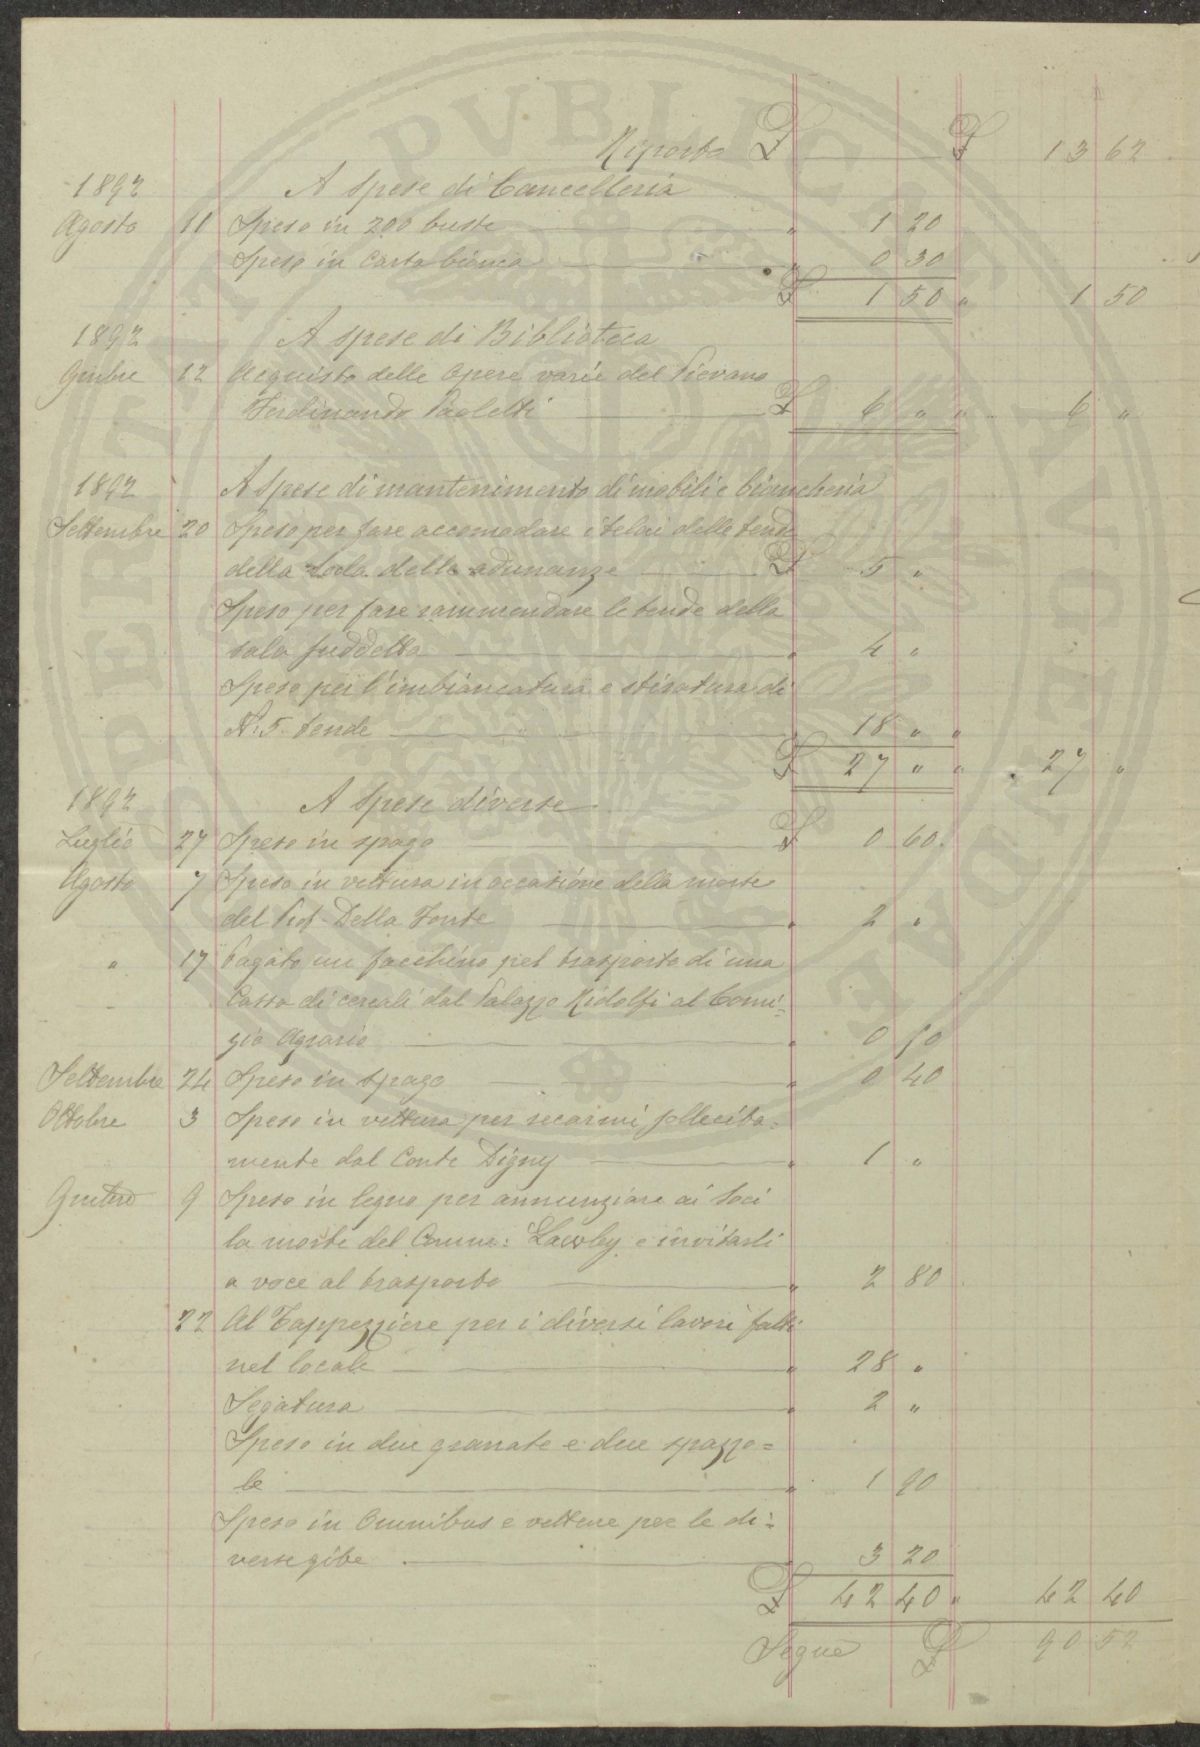 Riporto £ ——— £ 13 62
1892 A Spese di Cancelleria
Agosto 11 Speso in 200 buste " 1 20
Speso in Carta bianca " 0 30
£ 1 50 " 1 50
1892 A spese di Biblioteca
9mbre 12 Acquisto delle Opere varie del Pievano
Ferdinando Paoletti £ 6 " " 6 "
1892 A Spese di mantenimento di mobili e biancheria
Settembre 20 Speso per fare accomodare i telai delle tende
della Sala delle adunanze £ 5 "
Speso per fare rammendare le tende della
sala suddetta " 4 "
Speso per l'imbiancatura e stiratura di
N. 5 tende " 18 " "
£ 27 " " 27 "
1892 A Spese diverse
Luglio 27 Speso in spago £ 0 60
Agosto 7 Speso in vettura in occasione della morte
del Prof. Della Fonte " 2 "
" 17 Pagato un facchino pel trasporto di una
Cassa di cereali dal Palazzo Ridolfi al Comi=
zio Agrario " 0 50
Settembre 24 Speso in spago " 0 40
Ottobre 3 Speso in vettura per recarmi sollecita=
mente dal Conte Digny " 1 "
9mbre 9 Speso in legno per annunziare ai Soci
la morte del Comm: Lawley e invitarli
a voce al trasporto " 2 80
22 Al Tappezziere per i diversi lavori fatti
nel locale " 28 "
Segatura " 2 "
Speso in due granate e due spazzo=
le " 1 90
Speso in Omnibus e vetture per le di=
verse gite " 3 20
£ 42 40 " 42 40
Segue £ 90 52
OPERITVR PVBLICAE COMMODA